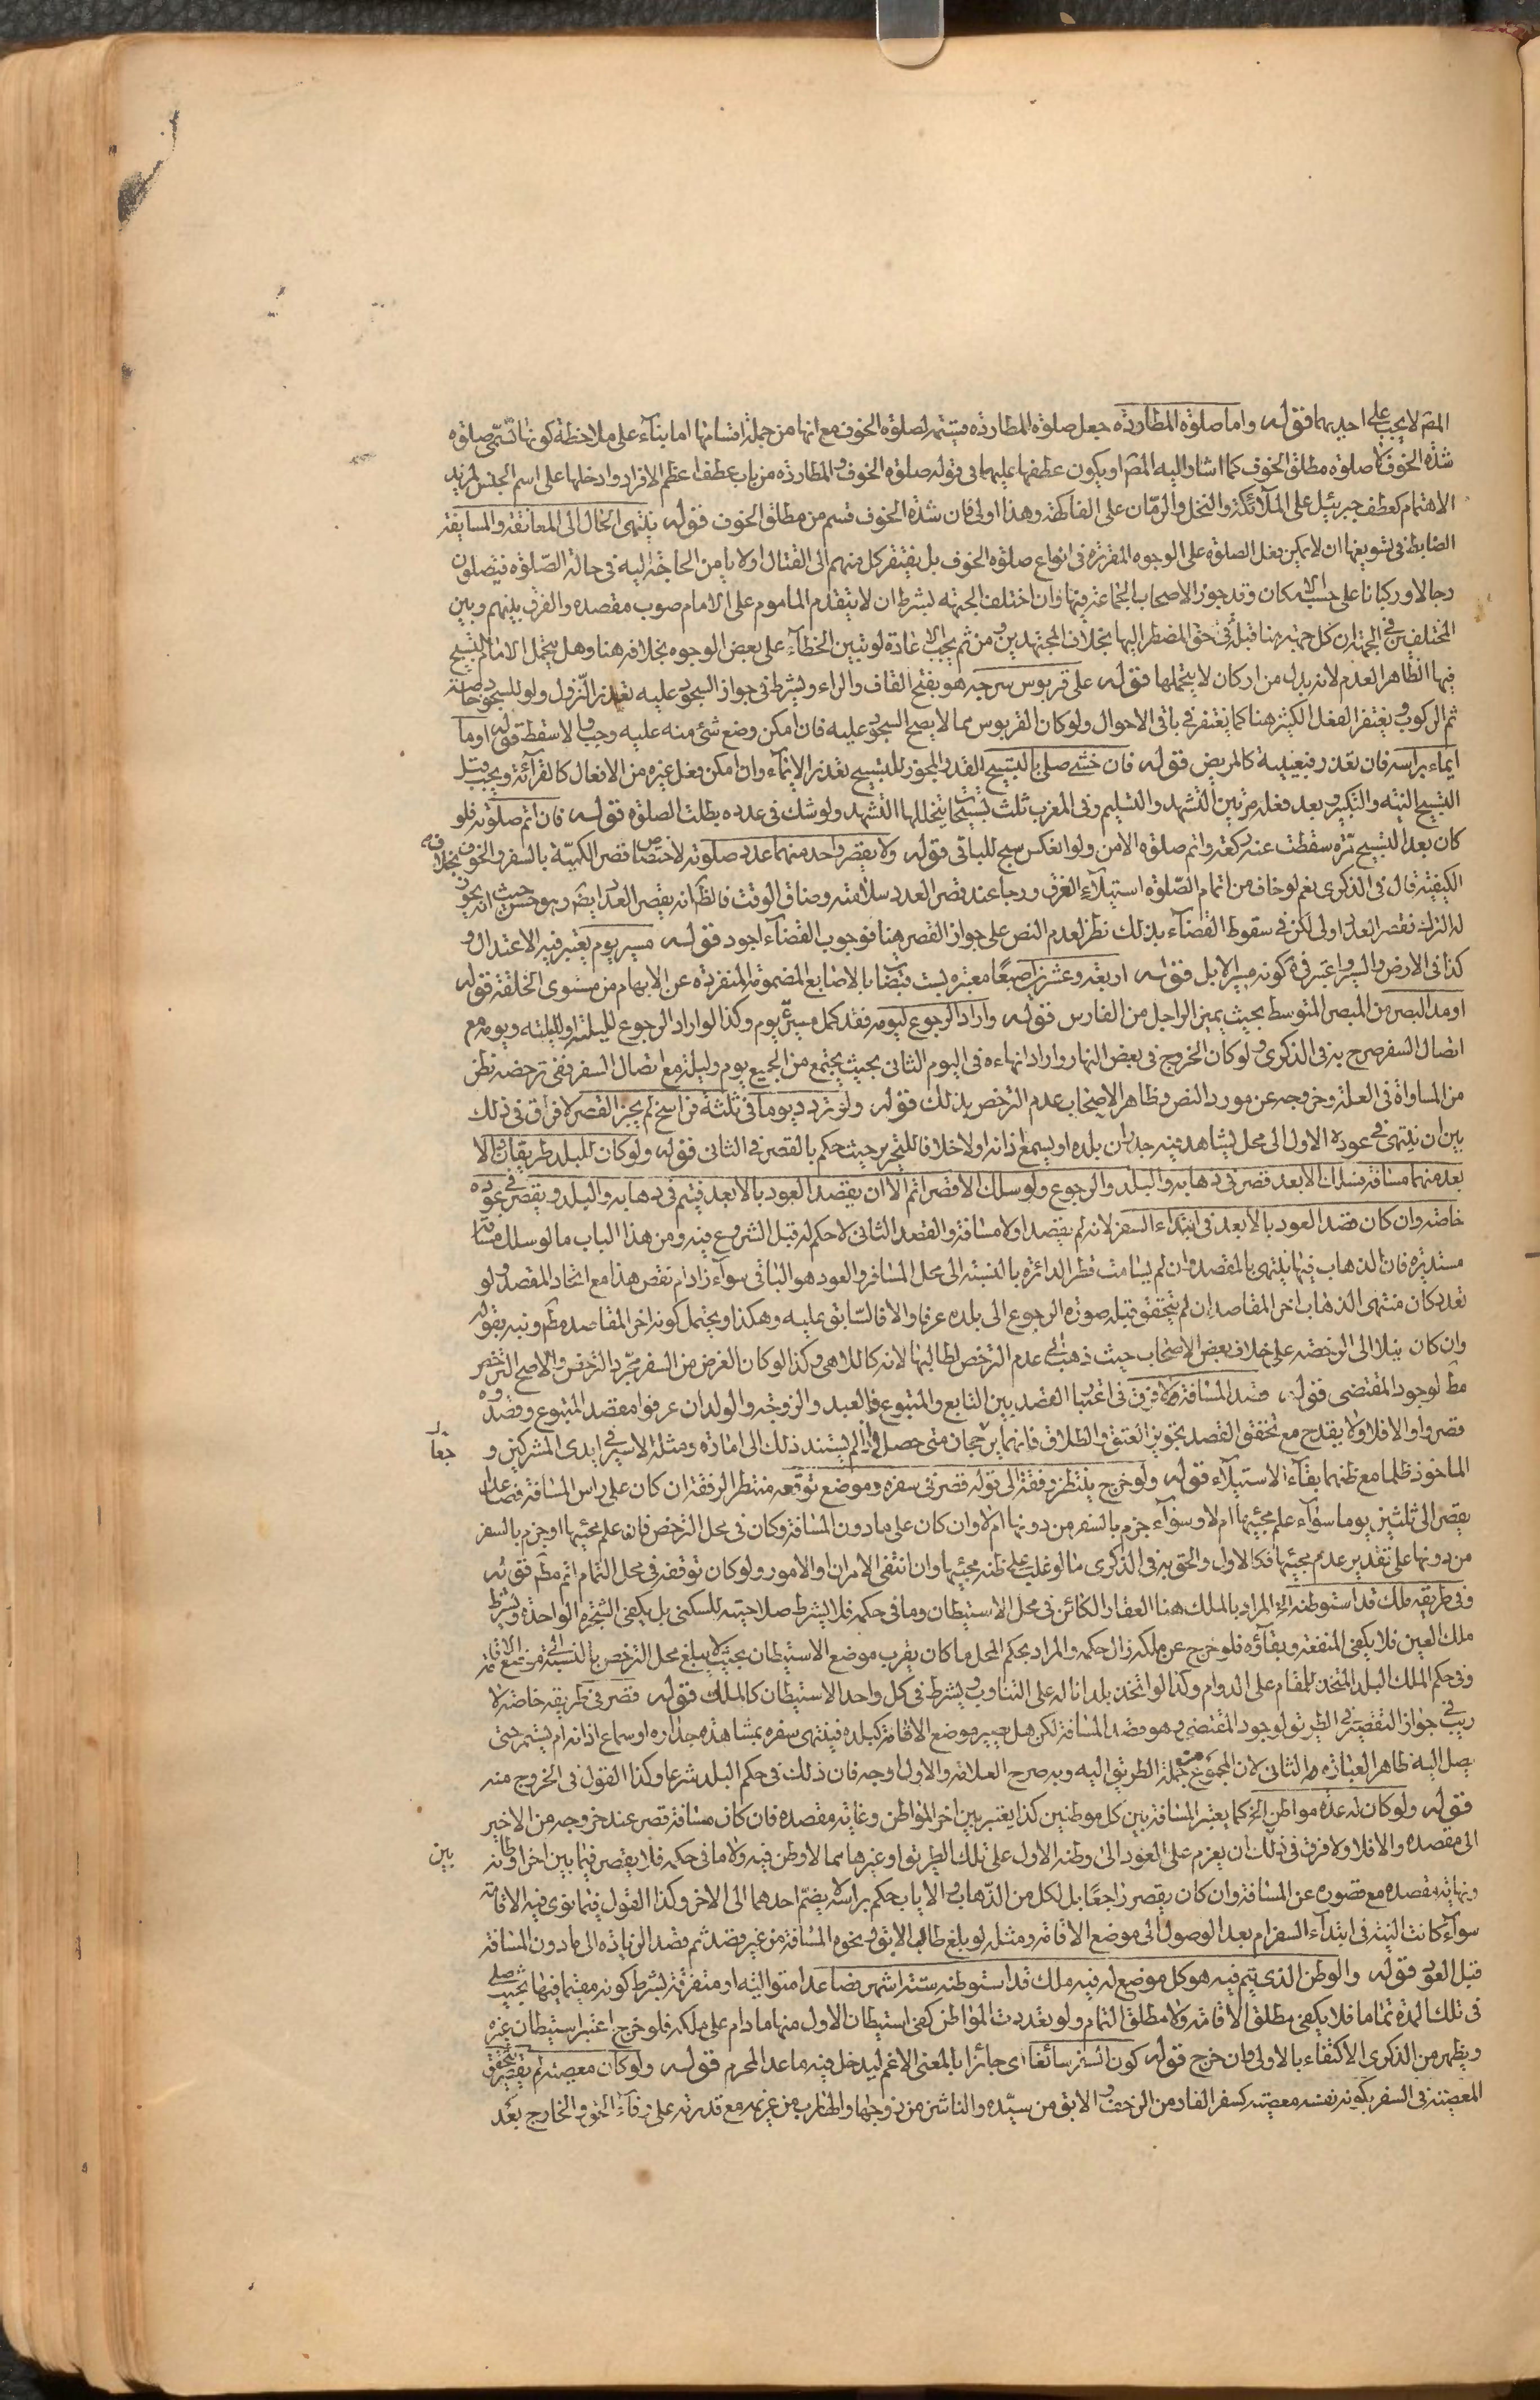 المص لا يجب على احديهما قوله واما صلوة المطاردة جعل صلوة المطاردة قسيمة لصلوة الخوف مع انها من جملة اقسامها اما بناء على ملاحظة كونها تسمى صلوة
شدة الخوف لا صلوة مطلق الخوف كما اشار اليه المص او يكون عطفها عليها في قوله صلوة الخوف والمطاردة من باب عطف اعظم الافراد وادخلها على اسم الجنس لمزيد
الاهتمام كعطف جبرئيل على الملائكة والنخل والرمان على الفاكهة وهذا اولى فان شدة الخوف قسم من مطلق الخوف قوله ينتهي الحال الى المعانقة والمسايفة
الضابط في تسويغها ان لا يمكن فعل الصلوة على الوجوه المقررة في انواع صلوة الخوف بل يفتقر كل منهم الى القتال او لا يامن الحاجة اليه في حالة الصلوة فيصلون
رجالا وركبانا على حسب الامكان وقد جوز الاصحاب الجماعة فيها وان اختلف الجهة بشرط ان لا يتقدم الماموم على الامام صوب مقصده والفرق بينهم وبين
المختلفين في الجهة ان كل جهة هنا قبلة في حق المضطر اليها بخلاف المجتهدين ومن ثم يجب الاعادة لو تبين الخطاء على بعض الوجوه بخلافه هنا وهل يتحمل الامام التسبيح
فيها الظاهر العدم لانه بدل من اركان لا يتحملها قوله على قربوس سرجه هو بفتح القاف والراء ويشرط في جواز السجود عليه تعذر النزول ولو للسجود خاصة
ثم الركوب ويغتفر الفعل الكثير هنا كما يغتفر في باقي الاحوال ولو كان القربوس مما لا يصح السجود عليه فان امكن وضع شئ منه عليه وجب والا سقط قوله اوما
ايماء براسه فان تعذر فبعينيه كالمريض قوله فان خشي صلى بالتسبيح القدر المجوز للتسبيح تعذر الايماء وان امكن فعل غيره من الافعال كالقرائة ويجب قبل
التسبيح النية والتكبير وبعد فعله مرتين التشهد والتسليم وفي المغرب ثلث تسبيحات يتخللها التشهد ولو شك في عدده بطلت الصلوة قوله فان اتم صلوته فلو
كان بعد التسبيح مرة سقطت عنه ركعة واتم صلوة الامن ولو انعكس سبح للباقي قوله ولا يقصر واحد منهما عدد صلوته لاختصاص قصر الكمية بالسفر والخوف بخلاف
الكيفية قال في الذكرى نعم لو خاف من اتمام الصلوة استيلاء الغرق ورجا عند قصر العدد سلامته وضاق الوقت فالظ انه يقصر العدد ايض وهو حسن حيث انه يجوز
له الترك فقصر العدد اولى لكن في سقوط القضاء بذلك نظر لعدم النص على جواز القصر هنا فوجوب القضاء اجود قوله مسير يوم يعتبر فيه الاعتدال و
كذا في الارض والسير واعتبر في كونه مسير الابل قوله اربعة وعشرين اصبعا معتبرة بست قبضات بالاصابع المضمومة المنفردة عن الابهام من مستوى الخلقة قوله
او مد البصر من المبصر المتوسط بحيث يميز الراجل من الفارس قوله واراد الرجوع ليومه فقد كمل مسير يوم وكذا لو اراد الرجوع لليلته او لليلته ويومه مع
اتصال السفر صرح به في الذكرى ولو كان الخروج في بعض النهار واراد انهاءه في اليوم الثاني بحيث يجتمع من الجميع يوم وليلة مع اتصال السفر ففي ترخصه نظر
من المساواة في العلة وخروجه عن مورد النص وظاهر الاصحاب عدم الترخص بذلك قوله ولو تردد يوما في ثلثة فراسخ لم يجز القصر لا فرق في ذلك
بين ان ينتهي في عوده الاول الى محل يشاهد فيه جدران بلده او يسمع اذانه او لا خلافا للتحرير حيث حكم بالقصر في الثاني قوله ولو كان للبلد طريقان والا
بعد منهما مسافة فسلك الابعد قصر في ذهابه والبلد والرجوع ولو سلك الاقصر اتم الا ان يقصد العود بالابعد فيتم في ذهابه والبلد ويقصر في عوده
خاصة وان كان قصد العود بالابعد في ابتداء السفر لانه لم يقصد اولا مسافة والقصد الثاني لا حكم له قبل الشروع فيه ومن هذا الباب ما لو سلك مسافة
مستديرة فان الذهاب فيها ينتهي بالمقصد وان لم يسامت قطر الدائرة بالنسبة الى محل المسافر والعود هو الباقي سواء زاد ام نقص هذا مع اتحاد المقصد ولو
تعدد كان منتهى الذهاب اخر المقاصد ان لم يتحقق قبله صورة الرجوع الى بلده عرفا والا فالسابق عليه وهكذا ويحتمل كونه اخر المقاصد مطم ونبه بقوله
وان كان ميلا الى الرخصة على خلاف بعض الاصحاب حيث ذهب الى عدم الترخص لطالبها لانه كاللاهي وكذا لو كان الغرض من السفر مجرد الترخص والاصح الترخص
مط لوجود المقتضي قوله قصد المسافة لا فرق في اعتبار القصد بين التابع والمتبوع فالعبد والزوجة والولد ان عرفوا مقصد المتبوع وقصدوه
قصروا والا فلا ولا يقدح مع تحقق القصد تجويز العتق والطلاق فانهما يرجحان متى حصل اذا لم يستند ذلك الى امارة ومثله الاسير في ايدي المشركين و
الماخوذ ظلما مع ظنهما بقاء الاستيلاء قوله ولو خرج ينتظر رفقة الى قوله قصر في سفره وموضع توقعه منتظر الرفقة ان كان على راس المسافة فصاعدا
يقصر الى ثلثين يوما سواء علم مجيئها ام لا وسواء جزم بالسفر من دونها ام لا وان كان على ما دون المسافة وكان في محل الترخص فان علم مجيئها او جزم بالسفر
من دونها على تقدير عدم مجيئها فكالاول والحق به في الذكرى ما لو غلب على ظنه مجيئها وان انتفى الامران او الامور ولو كان توقفه في محل التمام اتم مط قوله
وفي طريقه ملك قد استوطنه الخ المراد بالملك هنا العقار الكائن في محل الاستيطان وما في حكمه فلا يشرط صلاحيته للسكنى بل يكفي الشجرة الواحدة ويشرط
ملك العين فلا يكفي المنفعة وبقاؤه فلو خرج عن ملكه زال حكمه والمراد بحكم المحل ما كان يقرب موضع الاستيطان بحيث لا يبلغ محل الترخص بالنسبة الى موضع الاقامة
وفي حكم الملك البلد المتخذ للمقام على الدوام وكذا لو اتخذ بلدانا له على التناوب ويشرط في كل واحد الاستيطان كالملك قوله قصر في طريقه خاصة لا
ريب في جواز التقصير في الطريق لوجود المقتضي وهو قصد المسافة لكن هل يصير موضع الاقامة كبلده فينتهي سفره بمشاهدة جداره او سماع اذانه ام يستمر حتى
يصل اليه ظاهر العبارة الثاني لان المجموع من جملة الطريق اليه وبه صرح العلامة والاول اوجه فان ذلك في حكم البلد شرعا وكذا القول في الخروج منه
قوله ولو كان له عدة مواطن الخ كما يعتبر المسافة بين كل موطنين كذا يعتبر بين اخر المواطن وغاية مقصده فان كان مسافة قصر عند خروجه من الاخير
الى مقصده والا فلا ولا فرق في ذلك ان يعزم على العود الى وطنه الاول على تلك الطريق او غيرها مما لا وطن فيه ولا ما في حكمه فلا يقصر فيما بين اخر اوطانه
بين
ونهاية مقصده مع قصوره عن المسافة وان كان يقصر راجعا بل لكل من الذهاب والاياب حكم براسه لا يضم احدهما الى الاخر وكذا القول فيما نوى فيه الاقامة
سواء كانت النية في ابتداء السفر ام بعد الوصول الى موضع الاقامة ومثله لو بلغ طالب الابق ونحوه المسافة من غير قصد ثم قصد الزيادة الى ما دون المسافة
قبل العود قوله والوطن الذي يتم فيه هو كل موضع له فيه ملك قد استوطنه ستة اشهر فصاعدا متوالية او متفرقة بشرط كونه مقيما فيها بحيث صلى
في تلك المدة تماما فلا يكفي مطلق الاقامة ولا مطلق التمام ولو تعددت المواطن كفى استيطان الاول منها ما دام على ملكه فلو خرج اعتبر استيطان غيره
ويظهر من الذكرى الاكتفاء بالاولى وان خرج قوله كون السفر سائغا اى جائزا بالمعنى الاعم ليدخل فيه ما عدا المحرم قوله ولو كان معصية لم يقصر يتحقق
المعصية في السفر بكونه نفسه معصية كسفر الفار من الزحف والابق من سيده والناشز من زوجها والهارب من غريمه مع قدرته على وفاء الحق والخارج بعد